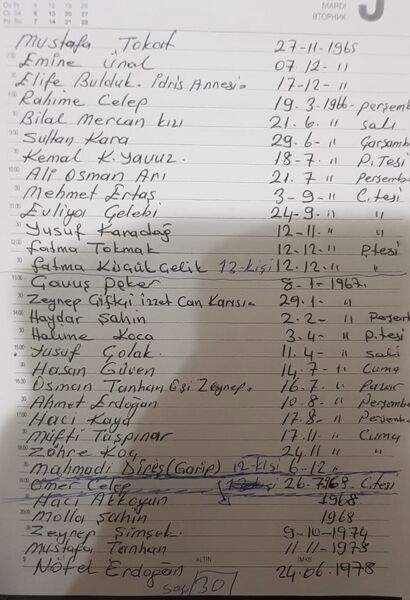 MARDI
ВТОРНИК
Mustafa Tokat 27-11-1965
Emine Ünal 07.12-"
Elife Bulduk. İdris Annesi. 17-12-"
Rahime Celep 19.3.1966-perşemb
Bilal Mercan kızı 21.6." Salı
Sultan Kara 29.6-" Çarşamba
Kemal K.Yavuz. 18-7-" P.Tesi
Ali Osman Arı 21.7" Perşembe
Mehmet Ertaş 3-9-" C.tesi
Evliya Çelebi 24-9-" "
Yusuf Karadağ 12-11-" "
Fatma Tokmak 12.12-" P.tesi
Fatma Küçük Çelik 12-kişi 12.12-" "
Yavuz Peker 8-1-1967.
Zeynep Çiftçi İzzet Can Karısı. 29.1-"
Haydar Şahin 2.2-" Perşem
Halime Koca 3.4-" P.tesi
Yusuf Çolak. 11.4-" Salı
Hasan Güven 14.7-" Cuma
Osman Tanhan Eşi Zeynep. 16.7-" Pazar
Ahmet Erdoğan 10.8-" Perşembe
Hacı Kaya 17.8-" Perşembe
Müfti Taşpınar 17.11-" Cuma
Zöhre Koç 24.11 "
Mahmadi Direş (Garip) 12-kişi 6-12 "
Ömer Celep 26-7-1968-C.tesi
Hacı Akkoyun 1968
Molla Şahin 1968
Zeynep Şimşek. 9-10-1974
Mustafa Tanhan 11-11-1978
Nöfel Erdoğan 24.06.1978
ALTIN
IMKB
30